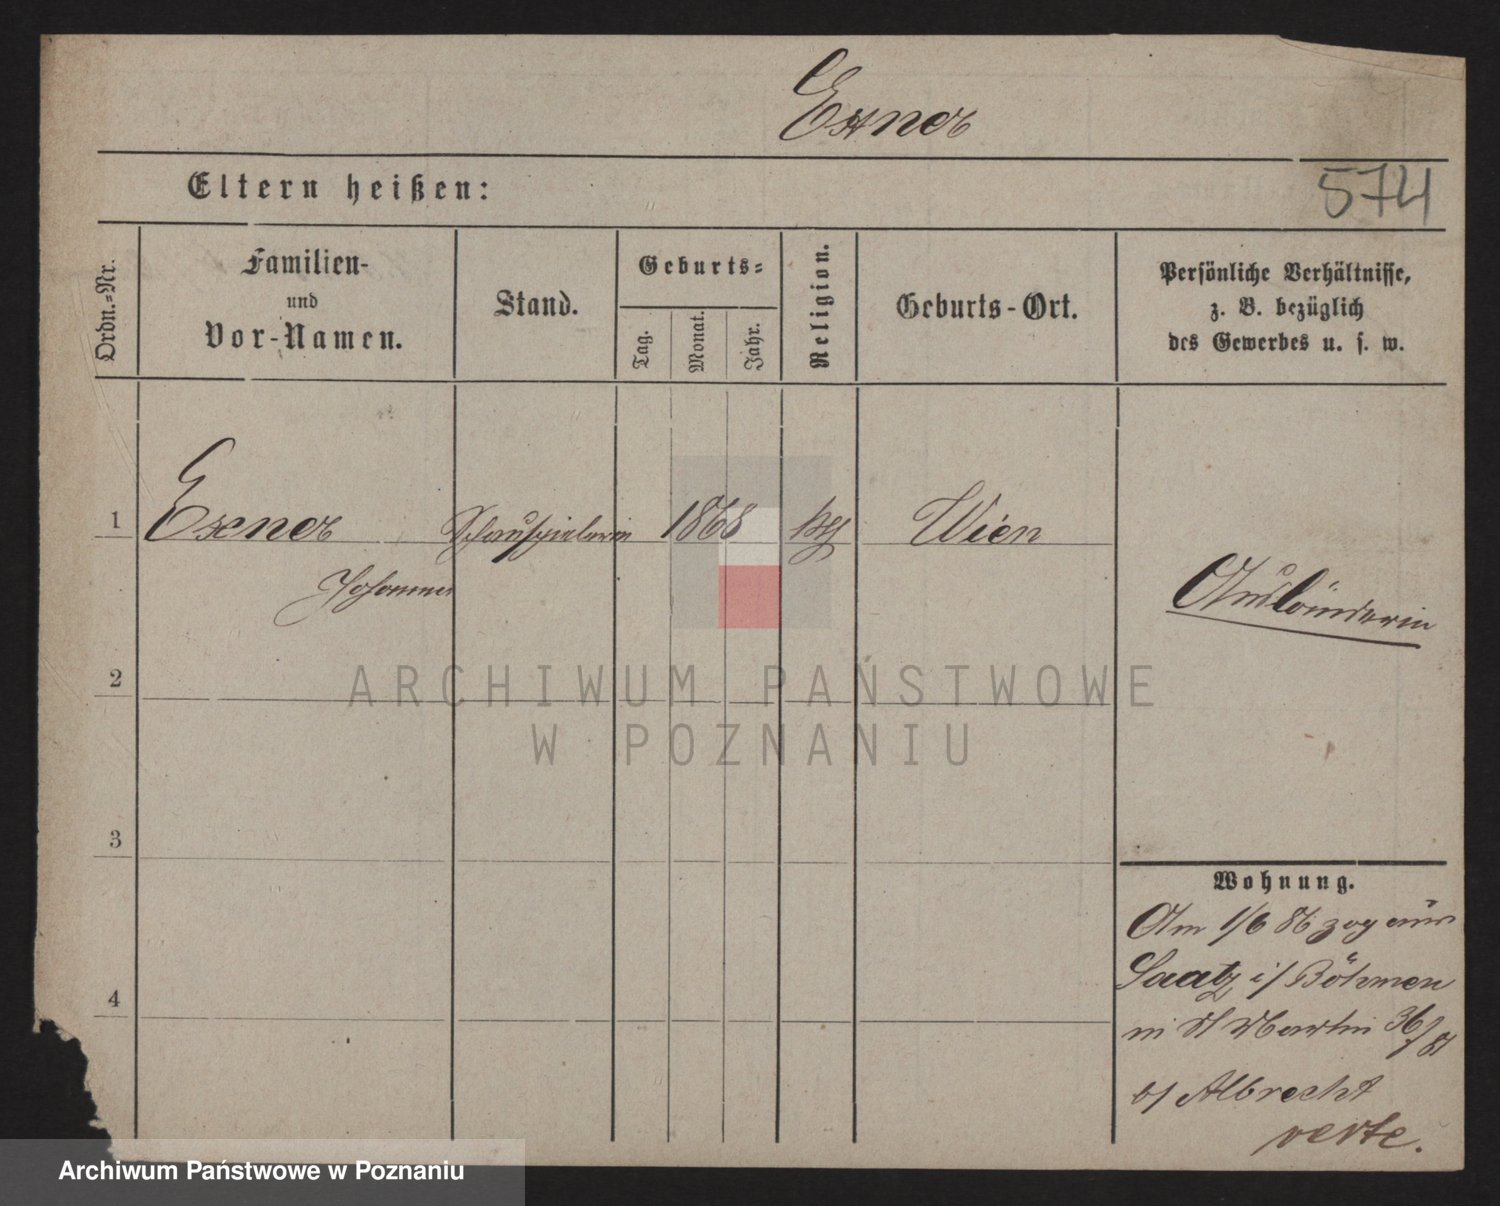 Exner
Eltern heißen:
574
Ordn.=Nr.
Familien-
und
Vor-Namen.
Stand.
Geburts=
Tag.
Monat.
Jahr.
Religion.
Geburts-Ort.
Persönliche Verhältnisse,
z. B. bezüglich
des Gewerbes u. s. w.
1
Exner
Schauspielerin
1868
kth
Wien
Johanna
Ausländerin
2
ARCHIWUM PAŃSTWOWE
W POZNANIU
3
Wohnung.
Am 1/6 86 zog aus
Saatz i/ Böhmen
4
n St Martin 36/
b/ Albrecht
verte.
Archiwum Państwowe w Poznaniu